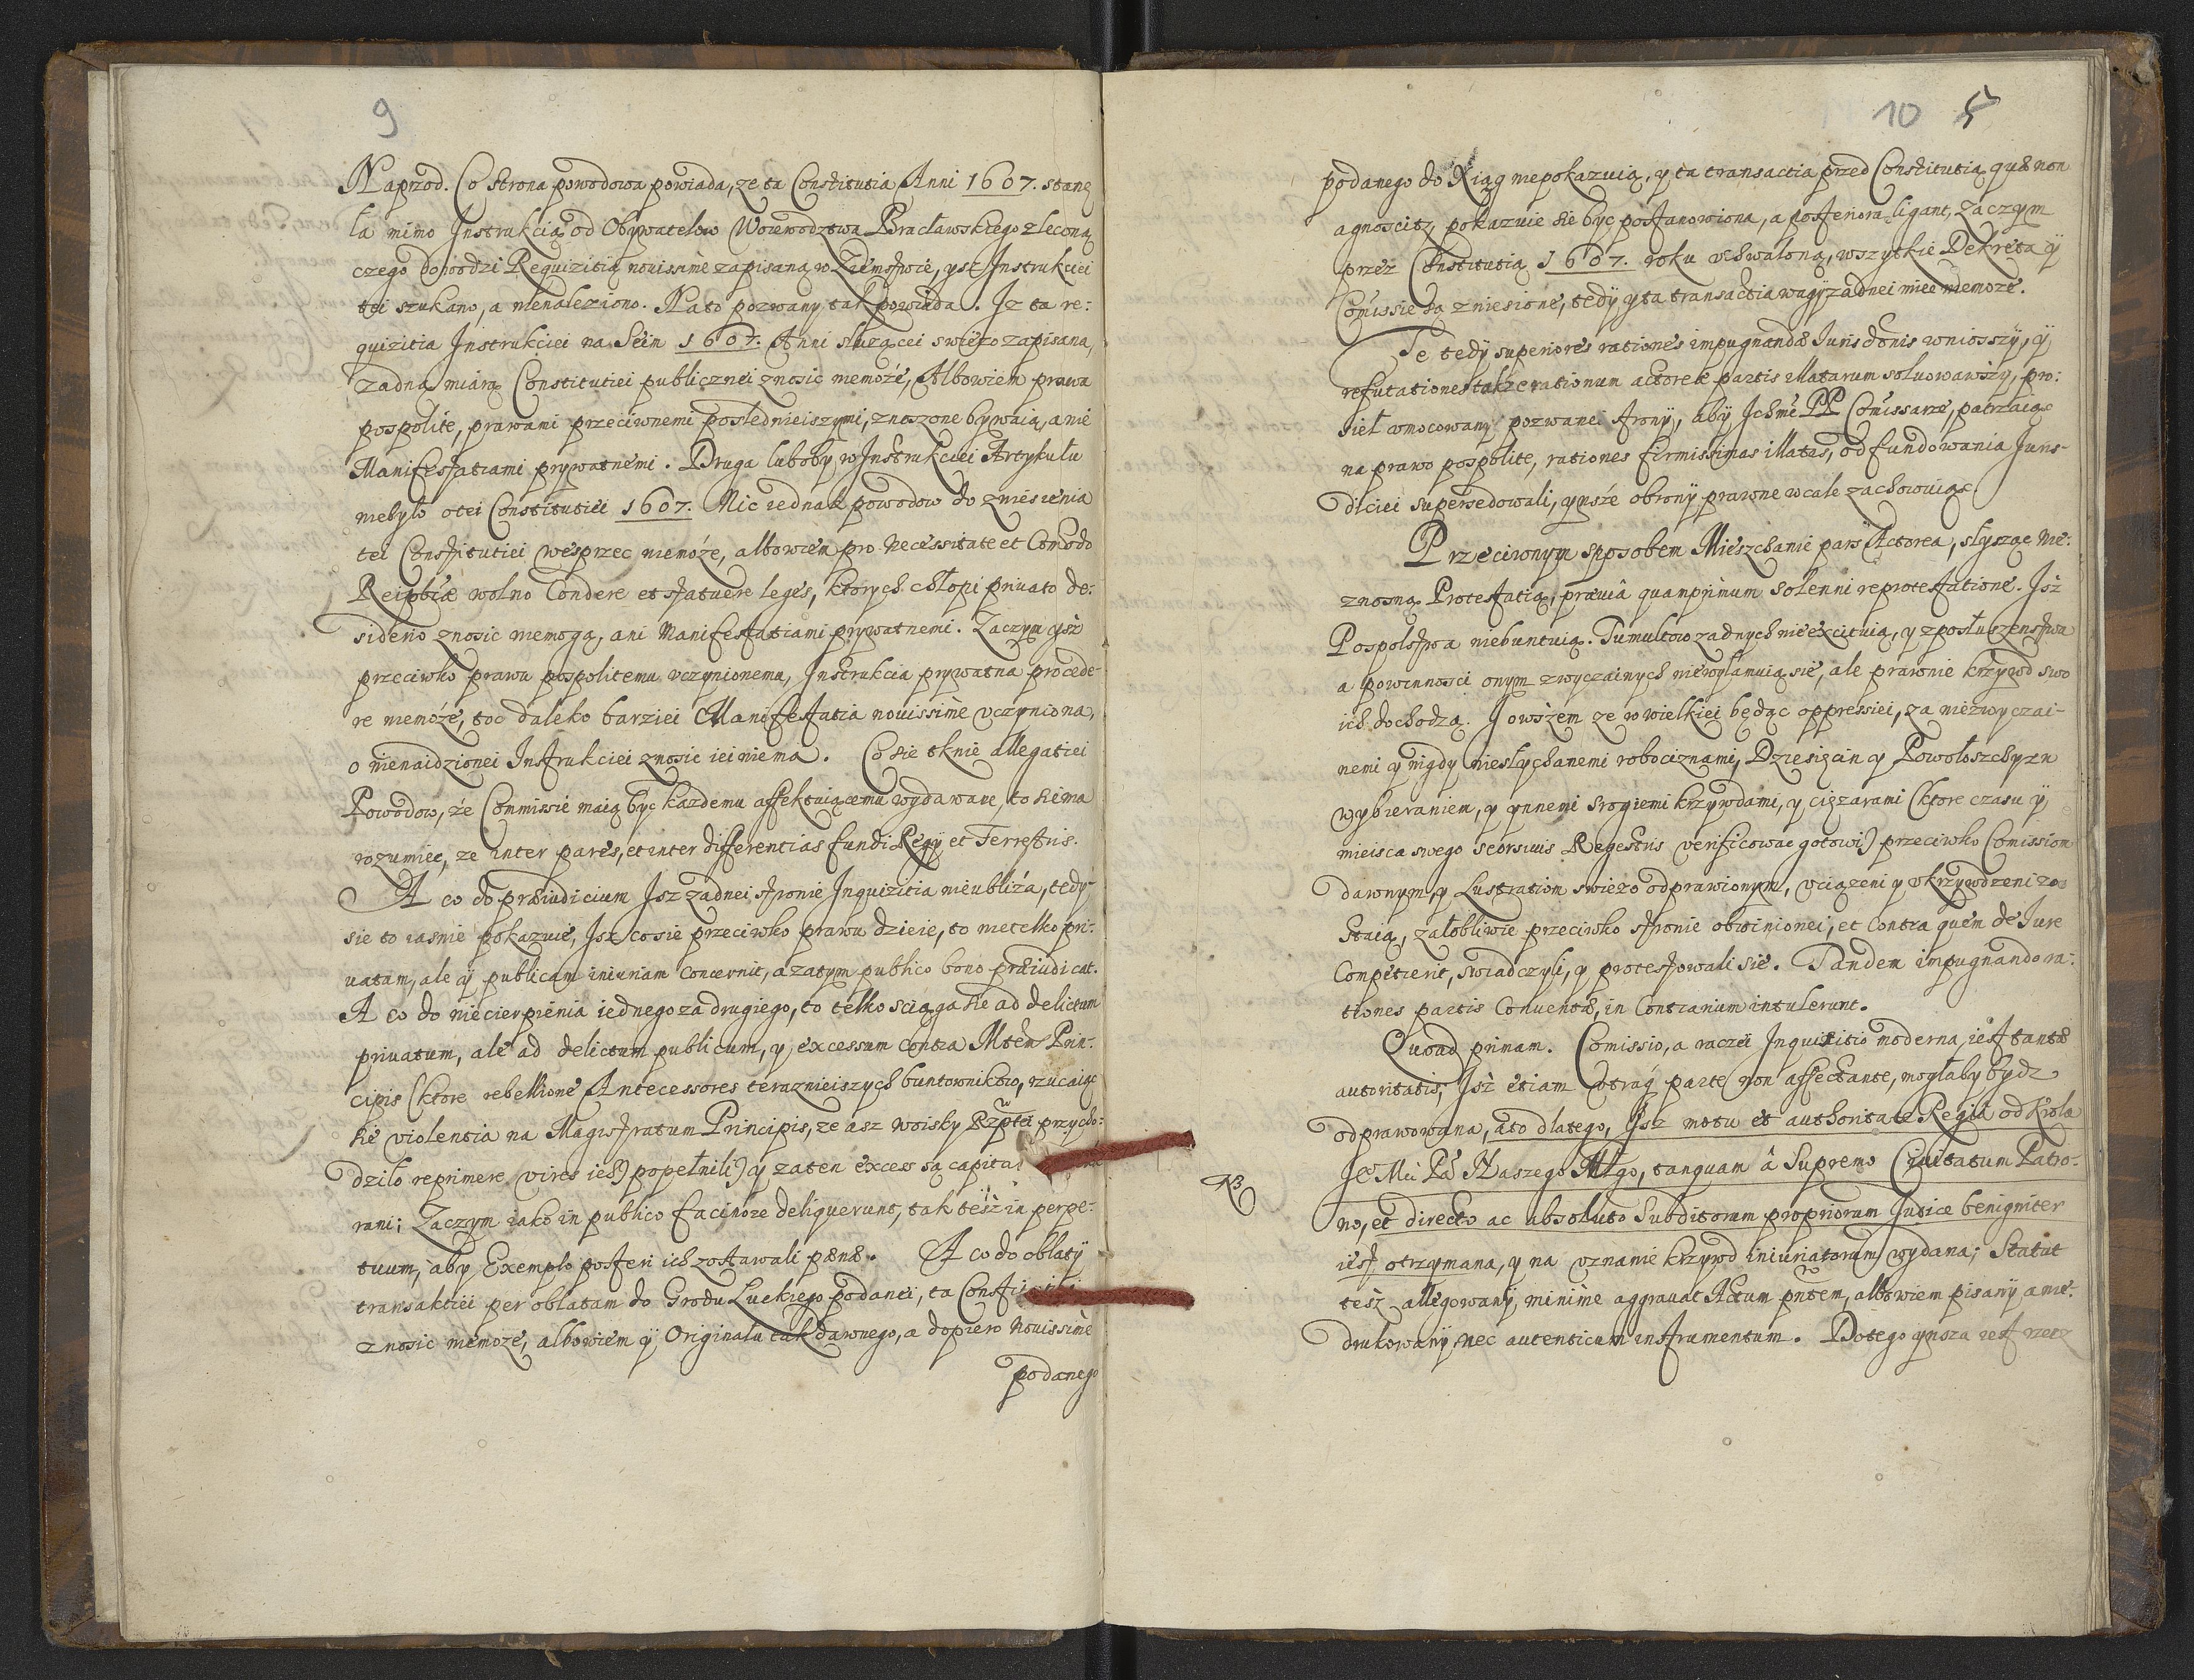 9
Naprzod. Co strona powodowa powiada, ze ta Constitutia Anni 1607. stanę
ła mimo Instrukcią od Obywatelow Woiewodztwa Bracławskiego zleconą
czego dowodzi Requizitią nouissime zapisaną w Ziemstwie, ysz Instrukciei
tei szukano, a nienaleziono. Na to pozwany tak powiada. Iz ta re:
quizitia Instrukciei na Seim 1607. Anni słuzącei swiezo zapisana,
zadną miarą Constitutiei publicznei znosic niemoze, Albowiem prawa
pospolite, prawami przeciwnemi poslednieiszymi, znoszone bywaią, a nie
Manifestatiami prywatnemi. Druga luboby w Instrukciei Artykułu
niebyło o tei Constitutiei 1607. Nic iednak powodow do zniesienia
tei Constitutiei wesprzec niemoze, albowiem pro necessitate et Comodo
Reipblæ wolno Condere et statuere leges, ktorych chłopi priuato de:
siderio znosic niemogą, ani Manifestatiami prywatnemi. Zaczym ysz
przeciwko prawu pospolitemu uczynionemu, Instrukcia prywatna procede-
re niemoze, toc daleko barziei Manifestatia nouissime uczyniona,
o nienaidzionei Instrukciei znosic iei niema. Co sie tknie allegatiei
Powodow, ze Commissie maią byc kazdemu affektuiącemu wydawane, to sie ma
rozumiec, ze inter pares, et inter differentias fundi Regÿ et Terrestris.
A co do præiudicium Isz zadnei stronie Inquizitia nieubliza, tedy
sie to iasnie pokazuie, Isz co sie przeciwko prawu dzieie, to nietelko pri:
uatam, ale ÿ publicam iniuriam concernit, a zatym publico bono præiudicat.
A co do niecierpienia iednego za drugiego, to telko sciąga sie ad delictum
priuatum, ale ad delictum publicum, y excessum contra Mtem Prin-
cipis (ktore rebellione Antecessores teraznieiszych buntownikow, rzucaiąc
sie violentia na Magistratum Principis, ze asz woisku Rzptei przycho:
dziło reprimere vires ich) popełnili) y za ten excess są
rani; Zaczym iako in publico facinore deliquerunt, tak tesz in perpe-
tuum, aby Exemplo posteri ich zostawali pænæ. A co do oblaty
transaktiei per oblatam do Grodu Luckiego podanei, ta
znosic niemoze, albowiem ÿ Originału tak dawnego, a dopiero Nouissime
podanego
10 5
podanego do Xiąg niepokazuią, y ta transactia przed Constitutią quæ non
agnoscitr, pokazuie sie byc postanowiona, a posteriora ligant, Zaczym
przez Constitutią 1607. roku uchwaloną, wszytkie Dekreta ÿ
Comissie są zniesione, tedÿ y ta transactia wagÿ zadnei miec niemoze.
Te tedÿ superiores rationes impugnandæ Iurisdonis wniosszÿ, ÿ
refutationes takze rationum actoreæ partis illatarum soluowawszy, pro:
sieł umocowany pozwanei strony, abÿ Ichme PP Comissarze, patrzaiąc
na prawo pospolite, rationes firmissimas illatas, od fundowania Juris-
dictiei supersedowali, ynsze obronÿ prawne wcale zachowuiąc
Przeciwnym sposobem Mieszchanie pars Actorea, słysząc nie:
znosną Protestatią, præuiâ quamprimum solenni reprotestatione. Isz
Pospolstwa niebuntuią. Tumultow zadnych nieexcituią, y z posłuszenstwa
a powinnosci onym zwyczainych niewyłamuią się, ale prawnie krzywd swo
ich dochodzą. I owszem ze w wielkiei będąc oppressiei, za niezwyczai-
nemi y nigdy niesłychanemi robociznami, Dziesięcin y Powołoszchyzn
wybieraniem, y ynnemi srogiemi krzywdami, y cięzarami (ktore czasu ÿ
mieisca swego seorsiuis Regestris verificowac gotowi) przeciwko Comissiom
dawnym, y Lustratiom swiezo odprawionym, uciązeni y ukrzywdzeni zo
staią, załobliwie przeciwko stronie obwinionei, et Contra quem de Iure
Competierit, swiadczyli, y protestowali sie. Tandem impugnando ra:
tiones partis Conuentæ, in Contrarium intulerunt.
Quoad primam. Comissio, a raczei Inquizitio moderna iest tantæ
autoritatis, Isz etiam utraq parte non affectante, mogłaby bydz
odprawowana, a to dlatego, Isz motu et authoritate Regiâ od Krola
Ie Mci Pa Naszego Młgo, tanquam â Supremo Ciuitatum Patro-
NB
no, et directo ac absoluto Subditorum propriorum Iudice benigniter
iest otrzymana, y na uznanie krzywd iniuriatorum wydana; Statut
tesz allegowanÿ minime aggrauat Actum pntem, albowiem pisanÿ a nie:
drukowanÿ, nec autenticum instrumentum. Do tego ynsza iest rzecz